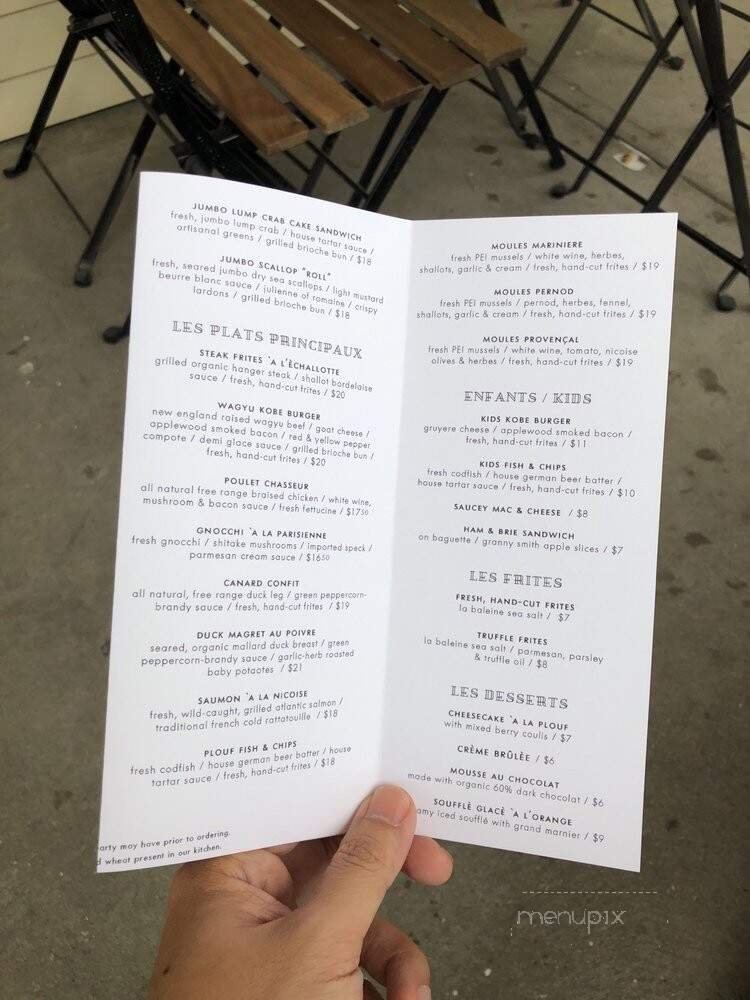 JUMBO LUMP CRAB CAKE SANDWICH
fresh, jumbo lump crab / house tartar sauce /
artisanal greens / grilled brioche bun / $18
JUMBO SCALLOP "ROLL"
fresh, seared jumbo dry sea scallops / light mustard
beurre blanc sauce / julienne of romaine / crispy
lardons / grilled brioche bun / $18
LES PLATS PRINCIPAUX
STEAK FRITES `A L'ÈCHALLOTTE
grilled organic hanger steak / shallot bordelaise
sauce / fresh, hand-cut frites / $20
WAGYU KOBE BURGER
new england raised wagyu beef / goat cheese /
applewood smoked bacon / red & yellow pepper
compote / demi glace sauce / grilled brioche bun /
fresh, hand-cut frites / $20
POULET CHASSEUR
all natural free range braised chicken / white wine,
mushroom & bacon sauce / fresh fettucine / $17.50
GNOCCHI `A LA PARISIENNE
fresh gnocchi / shitake mushrooms / imported speck /
parmesan cream sauce / $16.50
CANARD CONFIT
all natural, free range duck leg / green peppercorn-
brandy sauce / fresh, hand-cut frites / $19
DUCK MAGRET AU POIVRE
seared, organic mallard duck breast / green
peppercorn-brandy sauce / garlic-herb roasted
baby potaotes / $21
SAUMON `A LA NICOISE
fresh, wild-caught, grilled atlantic salmon /
traditional french cold rattatouille / $18
PLOUF FISH & CHIPS
fresh codfish / house german beer batter / house
tartar sauce / fresh, hand-cut frites / $18
arty may have prior to ordering.
d wheat present in our kitchen.
MOULES MARINIERE
fresh PEI mussels / white wine, herbes,
shallots, garlic & cream / fresh, hand-cut frites / $19
MOULES PERNOD
fresh PEI mussels / pernod, herbes, fennel,
shallots, garlic & cream / fresh, hand-cut frites / $19
MOULES PROVENÇAL
fresh PEI mussels / white wine, tomato, nicoise
olives & herbes / fresh, hand-cut frites / $19
ENFANTS / KIDS
KIDS KOBE BURGER
gruyere cheese / applewood smoked bacon /
fresh, hand-cut frites / $11
KIDS FISH & CHIPS
fresh codfish / house german beer batter /
house tartar sauce / fresh, hand-cut frites / $10
SAUCEY MAC & CHEESE / $8
HAM & BRIE SANDWICH
on baguette / granny smith apple slices / $7
LES FRITES
FRESH, HAND-CUT FRITES
la baleine sea salt / $7
TRUFFLE FRITES
la baleine sea salt / parmesan, parsley
& truffle oil / $8
LES DESSERTS
CHEESECAKE `A LA PLOUF
with mixed berry coulis / $7
CRÈME BRÛLÈE / $6
MOUSSE AU CHOCOLAT
made with organic 60% dark chocolat / $6
SOUFFLÈ GLACÈ `A L'ORANGE
amy iced soufflé with grand marnier / $9
menupix